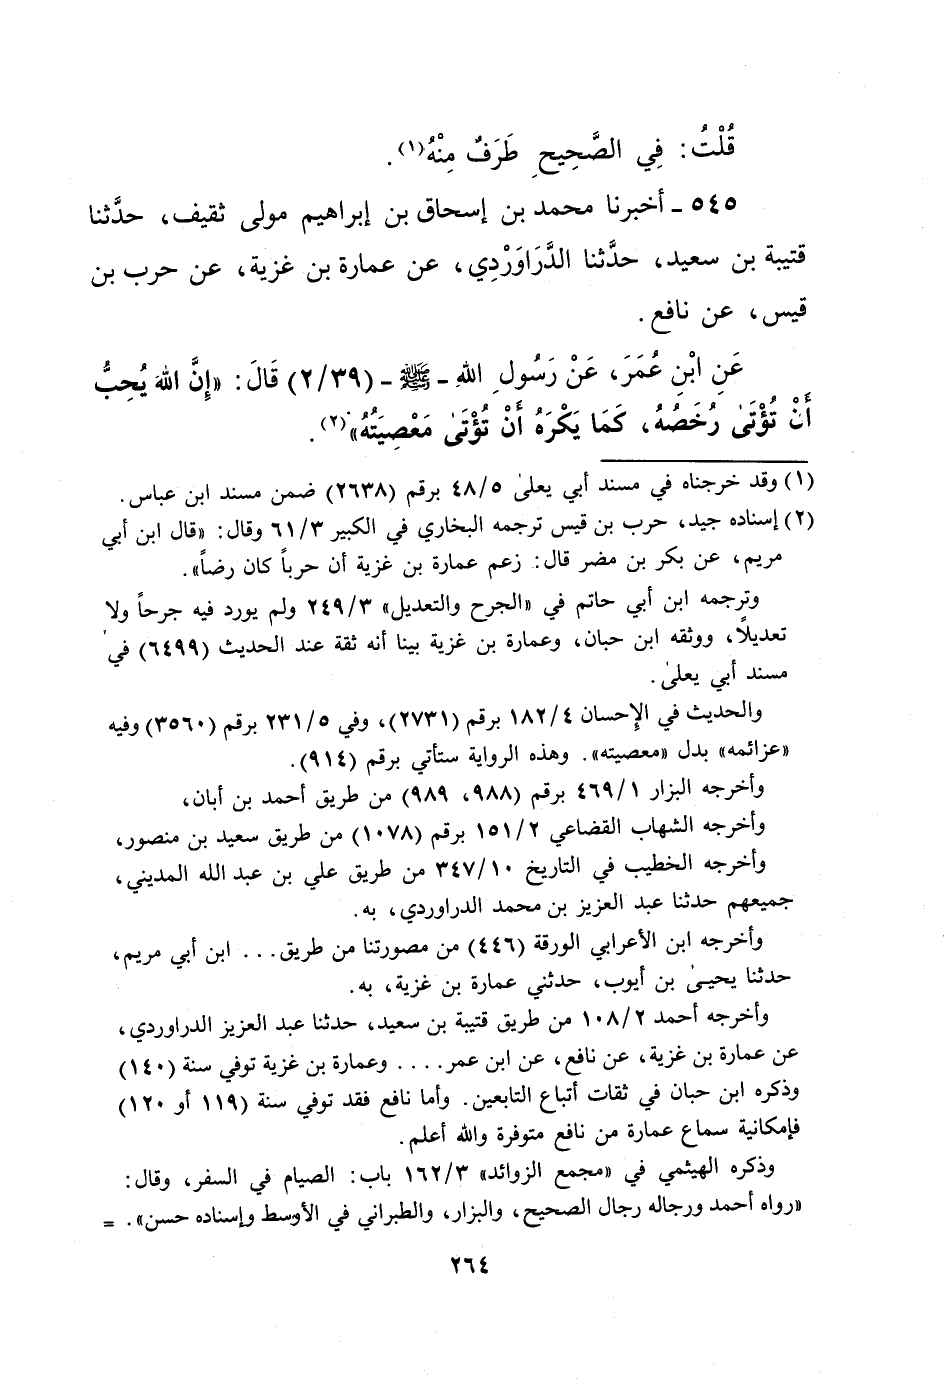 قُلْتُ: فِي الصَّحِيحِ طَرَفٌ مِنْهُ(١).
٥٤٥ ـ أخبرنا محمد بن إسحاق بن إبراهيم مولى ثقيف، حدَّثنا
قتيبة بن سعيد، حدَّثنا الدَّرَاوَرْدِي، عن عمارة بن غزية، عن حرب بن
قيس، عن نافع.
عَنِ ابْنِ عُمَرَ، عَنْ رَسُولِ اللهِ ـ ﷺ ـ (٢/٣٩) قَالَ: «إِنَّ اللهَ يُحِبُّ
أَنْ تُؤْتَىٰ رُخَصُهُ، كَمَا يَكْرَهُ أَنْ تُؤْتَىٰ مَعْصِيَتُهُ»(٢).
(١) وقد خرجناه في مسند أبي يعلىٰ ٤٨/٥ برقم (٢٦٣٨) ضمن مسند ابن عباس.
(٢) إسناده جيد، حرب بن قيس ترجمه البخاري في الكبير ٦١/٣ وقال: «قال ابن أبي
مريم، عن بكر بن مضر قال: زعم عمارة بن غزية أن حرباً كان رضاً».
وترجمه ابن أبي حاتم في «الجرح والتعديل» ٢٤٩/٣ ولم يورد فيه جرحاً ولا
تعديلًا، ووثقه ابن حبان، وعمارة بن غزية بينا أنه ثقة عند الحديث (٦٤٩٩) في
مسند أبي يعلىٰ.
والحديث في الإحسان ١٨٢/٤ برقم (٢٧٣١)، وفي ٢٣١/٥ برقم (٣٥٦٠) وفيه
«عزائمه» بدل «معصيته». وهذه الرواية ستأتي برقم (٩١٤).
وأخرجه البزار ٤٦٩/١ برقم (٩٨٨، ٩٨٩) من طريق أحمد بن أبان،
وأخرجه الشهاب القضاعي ١٥١/٢ برقم (١٠٧٨) من طريق سعيد بن منصور،
وأخرجه الخطيب في التاريخ ٣٤٧/١٠ من طريق علي بن عبد الله المديني،
جميعهم حدثنا عبد العزيز بن محمد الدراوردي، به.
وأخرجه ابن الأعرابي الورقة (٤٤٦) من مصورتنا من طريق... ابن أبي مريم،
حدثنا يحيىٰ بن أيوب، حدثني عمارة بن غزية، به.
وأخرجه أحمد ١٠٨/٢ من طريق قتيبة بن سعيد، حدثنا عبد العزيز الدراوردي،
عن عمارة بن غزية، عن نافع، عن ابن عمر.... وعمارة بن غزية توفي سنة (١٤٠)
وذكره ابن حبان في ثقات أتباع التابعين. وأما نافع فقد توفي سنة (١١٩ أو ١٢٠)
فإمكانية سماع عمارة من نافع متوفرة والله أعلم.
وذكره الهيثمي في «مجمع الزوائد» ١٦٢/٣ باب: الصيام في السفر، وقال:
«رواه أحمد ورجاله رجال الصحيح، والبزار، والطبراني في الأوسط وإسناده حسن». =
٢٦٤